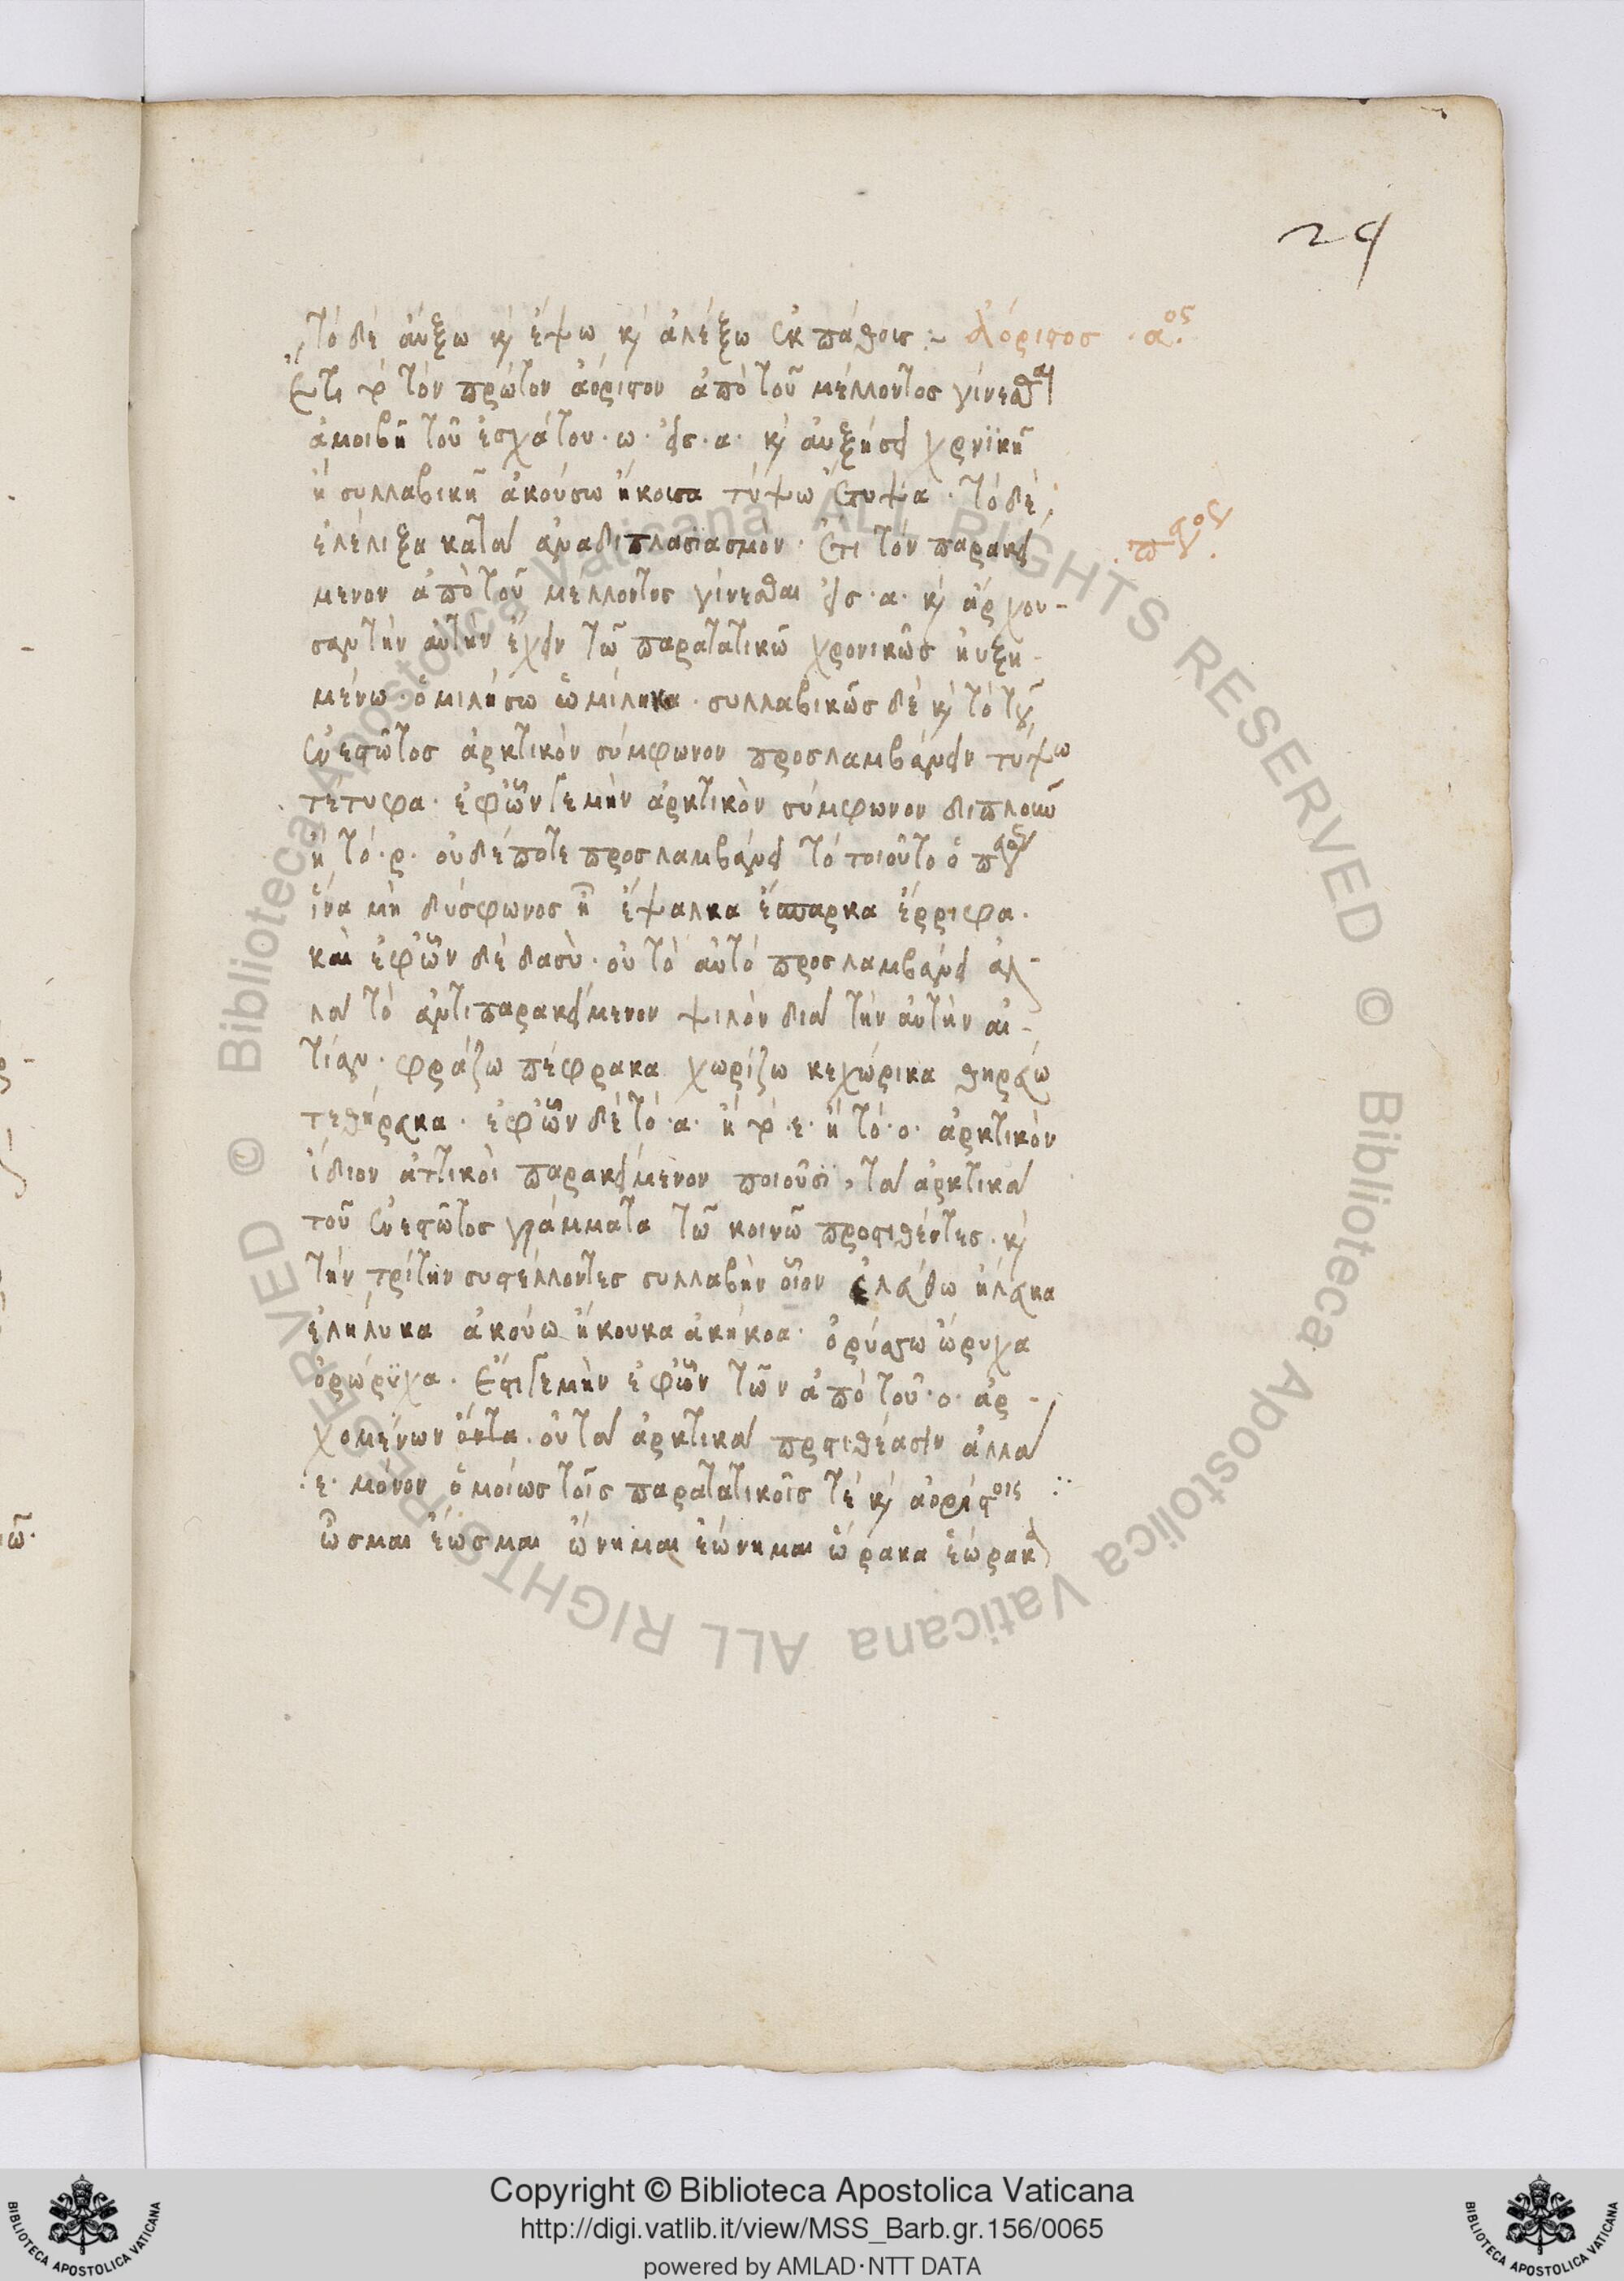 29
τὸ δὲ αὔξω κὶ ἕψω κὶ ἀλέξω ἐκ πάθους :~ ἀόριστος · αος
ἔτι τὸν πρῶτον ἀόριστον ἀπὸ τοῦ μέλλοντος γίνεσθαι
ἀμοιβῆ τοῦ ἐσχάτου · ω · εἰς · α · κὶ αὐξήσει χρονϊκῆ
ἢ συλλαβικῆ ἀκούσω ἤκουσα τύψω ἔτυψα · τὸ δὲ
ἐλέλιξα κατὰ ἀναδιπλασϊασμὸν · ἔτι τὸν παρακεί
μενον ἀπὸ τοῦ μέλλοντος γίνεσθαι εἰς · α · κὶ ἄρχου-
σαν τὴν αὐτὴν ἔχειν τῶ παρατατικῶ χρονικῶς ηὐξη-
μένω · ὁμιλήσω ὡμίληκα · συλλαβικῶς δὲ κὶ τὸ τοῦ
ἐνεστῶτος ἀρκτικὸν σύμφωνον προσλαμβάνειν τύψω
τέτυφα · ἐφ' ὧν γε μὴν ἀρκτικὸν σύμφωνον διπλοῦν
ἢ τὸ · ρ · οὐδέποτε προσλαμβάνει τὸ τοιοῦτο ὁ
ἵνα μὴ δύσφωνος ἦ ἔψαλκα ἔσπαρκα ἔρριφα ·
καὶ ἐφ' ὧν δὲ δασὺ · οὐ τὸ αὐτὸ προσλαμβάνει ἀλ-
λὰ τὸ ἀντιπαρακείμενον ψιλὸν διὰ τὴν αὐτὴν αἰ-
τίαν · φράζω πέφρακα χωρίζω κεχώρικα θηράω
τεθήρακα · ἐφ' ὧν δὲ τὸ · α · ἢ τὸ · ε · ἢ τὸ · ο · ἀρκτικὸν
ἴδιον ἀττικοὶ παρακείμενον ποιοῦσϊ, τὰ ἀρκτικὰ
τοῦ ἐνεστῶτος γράμματα τῶ κοινῶ προστιθέντες · κὶ
τὴν τρίτην συστέλλοντες συλλαβὴν οἷον ἐλαύνω ἤλακα
ἐλήλυκα ἀκούω ἤκουκα ἀκήκοα · ὀρύσσω ὤρυχα
ὀρώρϋχα · ἔστι γε μὴν ἐφ' ὧν τῶν ἀπὸ τοῦ · ο · ἀρ-
χομένων ὄντα · οὐ τὰ ἀρκτικὰ προστιθέασιν ἀλλὰ
· ε · μόνον ὁμοίως τοῖς παρατατικοῖς τὲ κὶ ἀορίστοις :·
ὦσμαι ἔωσμαι ὤνημαι ἐώνημαι ὥρακα ἑώρακα
Copyright © Biblioteca Apostolica Vaticana
http://digi.vatlib.it/view/MSS_Barb.gr.156/0065
powered by AMLAD·NTT DATA
BIBLIOTECA APOSTOLICA VATICANA
BIBLIOTECA APOSTOLICA VATICANA
© Biblioteca Apostolica Vaticana ALL RIGHTS RESERVED © Biblioteca Apostolica Vaticana ALL RIGHTS RESERVED